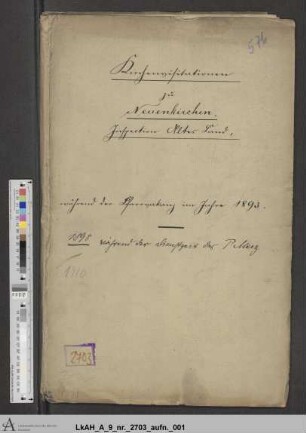 Kirchenvisitationen
zu
Neuenkirchen,
Inspection Altes Land,
während der Pfarrvakanz im Jahre 1893.
1898 während der
2703
LkAH_A_9_nr_2703_aufn_001